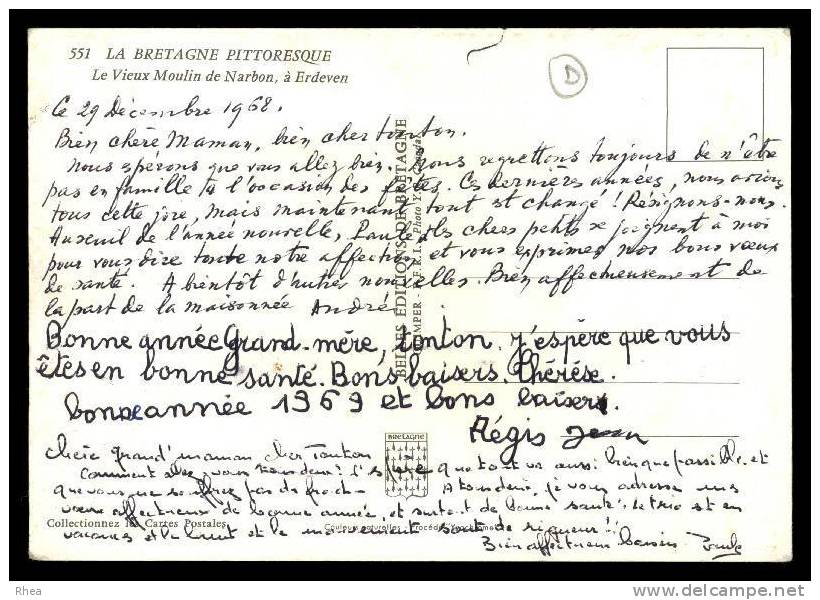 551 LA BRETAGNE PITTORESQUE
Le Vieux Moulin de Narbon, à Erdeven
D
Ce 29 Décembre 1968.
Bien chère Maman, bien cher tonton.
Nous espérons que vous allez bien. Nous regrettons toujours de n'être
pas en famille à l'occasion des fêtes. Ces dernières années, nous avions
tous cette joie, mais maintenant tout est changé ! Résignons-nous.
Au seuil de l'année nouvelle, Paule et les chers petits se joignent à moi
pour vous dire toute notre affection et vous exprimer nos bons vœux
de santé. A bientôt d'autres nouvelles. Bien affectueusement de
la part de la maisonnée André
Bonne année Grand-mère, tonton. j'espère que vous
êtes en bonne santé. Bons baisers. Thérèse.
bonne année 1969 et bons baisers.
Régis Jean
chère grand'maman cher Tonton
Comment allez vous tous deux? J'espère que tout va aussi bien que possible et
que vous ne souffrez pas du froid. A tous deux, je vous adresse mes
vœux affectueux de bonne année, et surtout de bonne santé. le trio est en
vacances et le bruit et le mouvement sont de rigueur !!
Bien affectueux baisers Paule
BELLES ÉDITIONS DE BRETAGNE
BRETAGNE
Collectionnez les Cartes Postales
Couleurs naturelles - Procédé
Rhea
www.delcampe.net